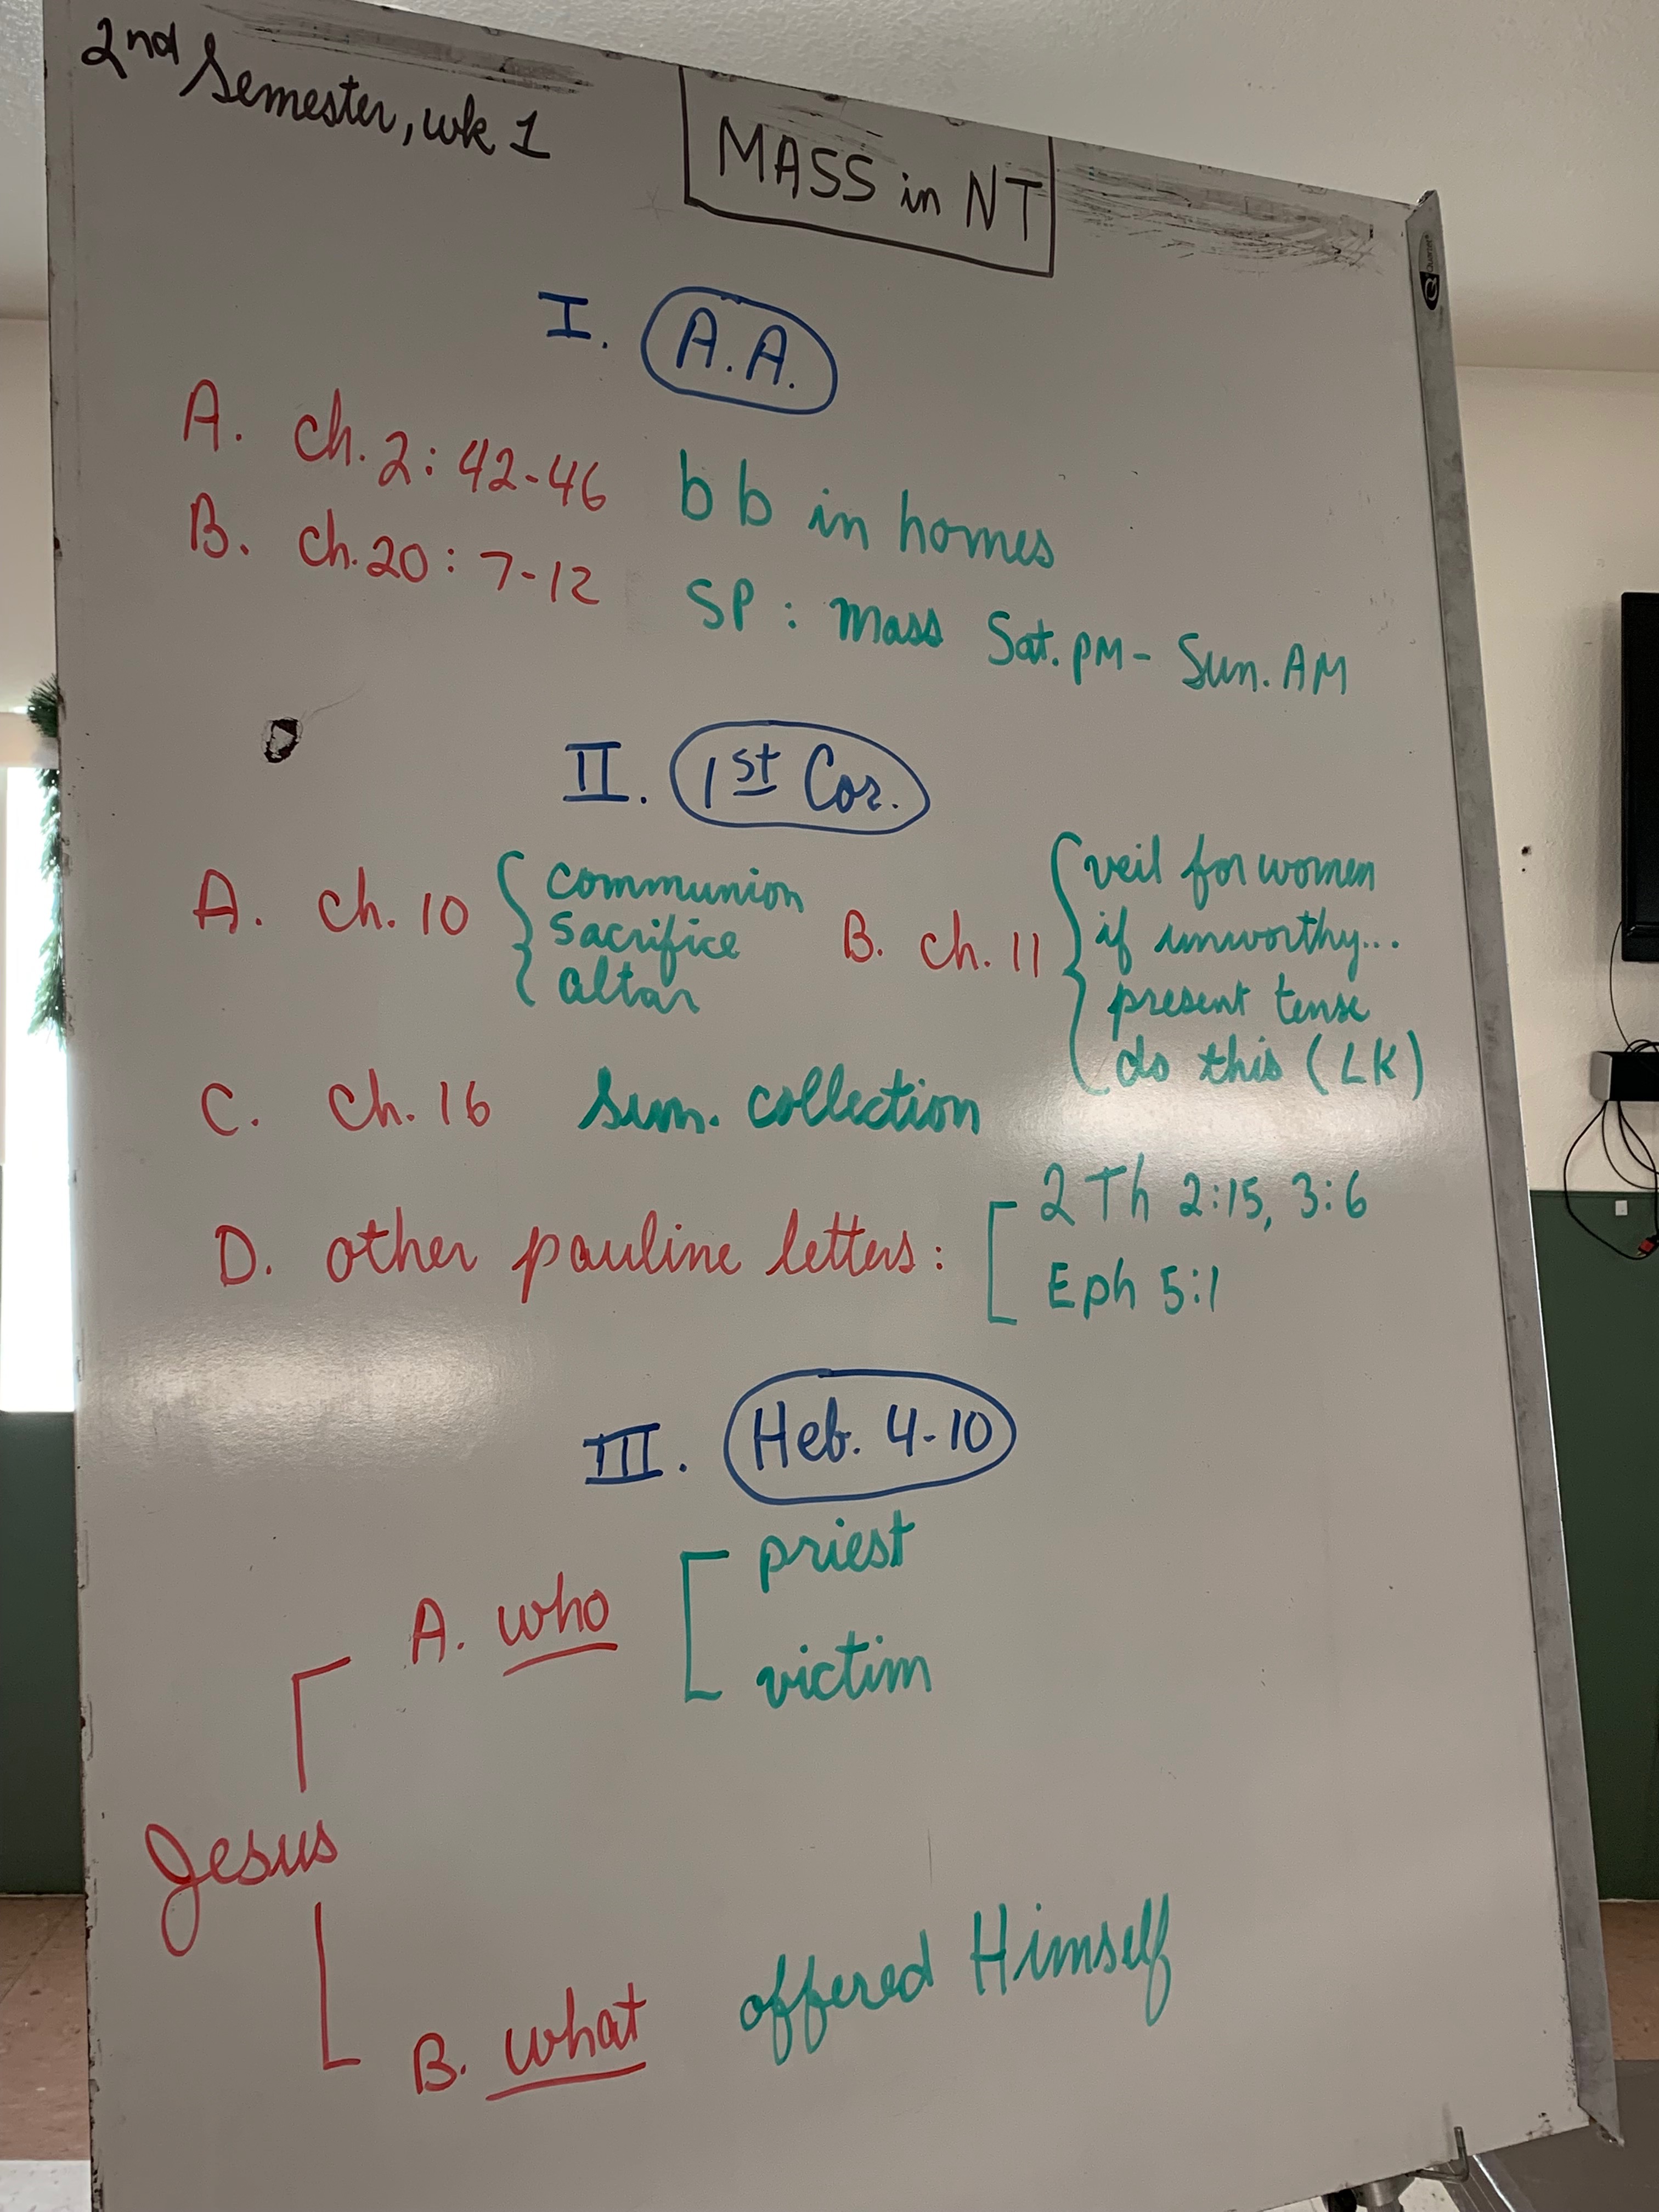 2nd Semester, wk 1
MASS in NT
I. A.A.
A. ch. 2: 42-46 bb in homes
B. ch. 20: 7-12 SP: Mass Sat. PM - Sun. AM
II. 1st Cor.
A. ch. 10
communion
sacrifice
altar
B. ch. 11
veil for women
if unworthy...
present tense
do this (LK)
C. ch. 16 Sun. collection
D. other pauline letters:
2 Th 2:15, 3:6
Eph 5:1
III. Heb. 4-10
Jesus
A. who
priest
victim
B. what offered Himself
Quartet